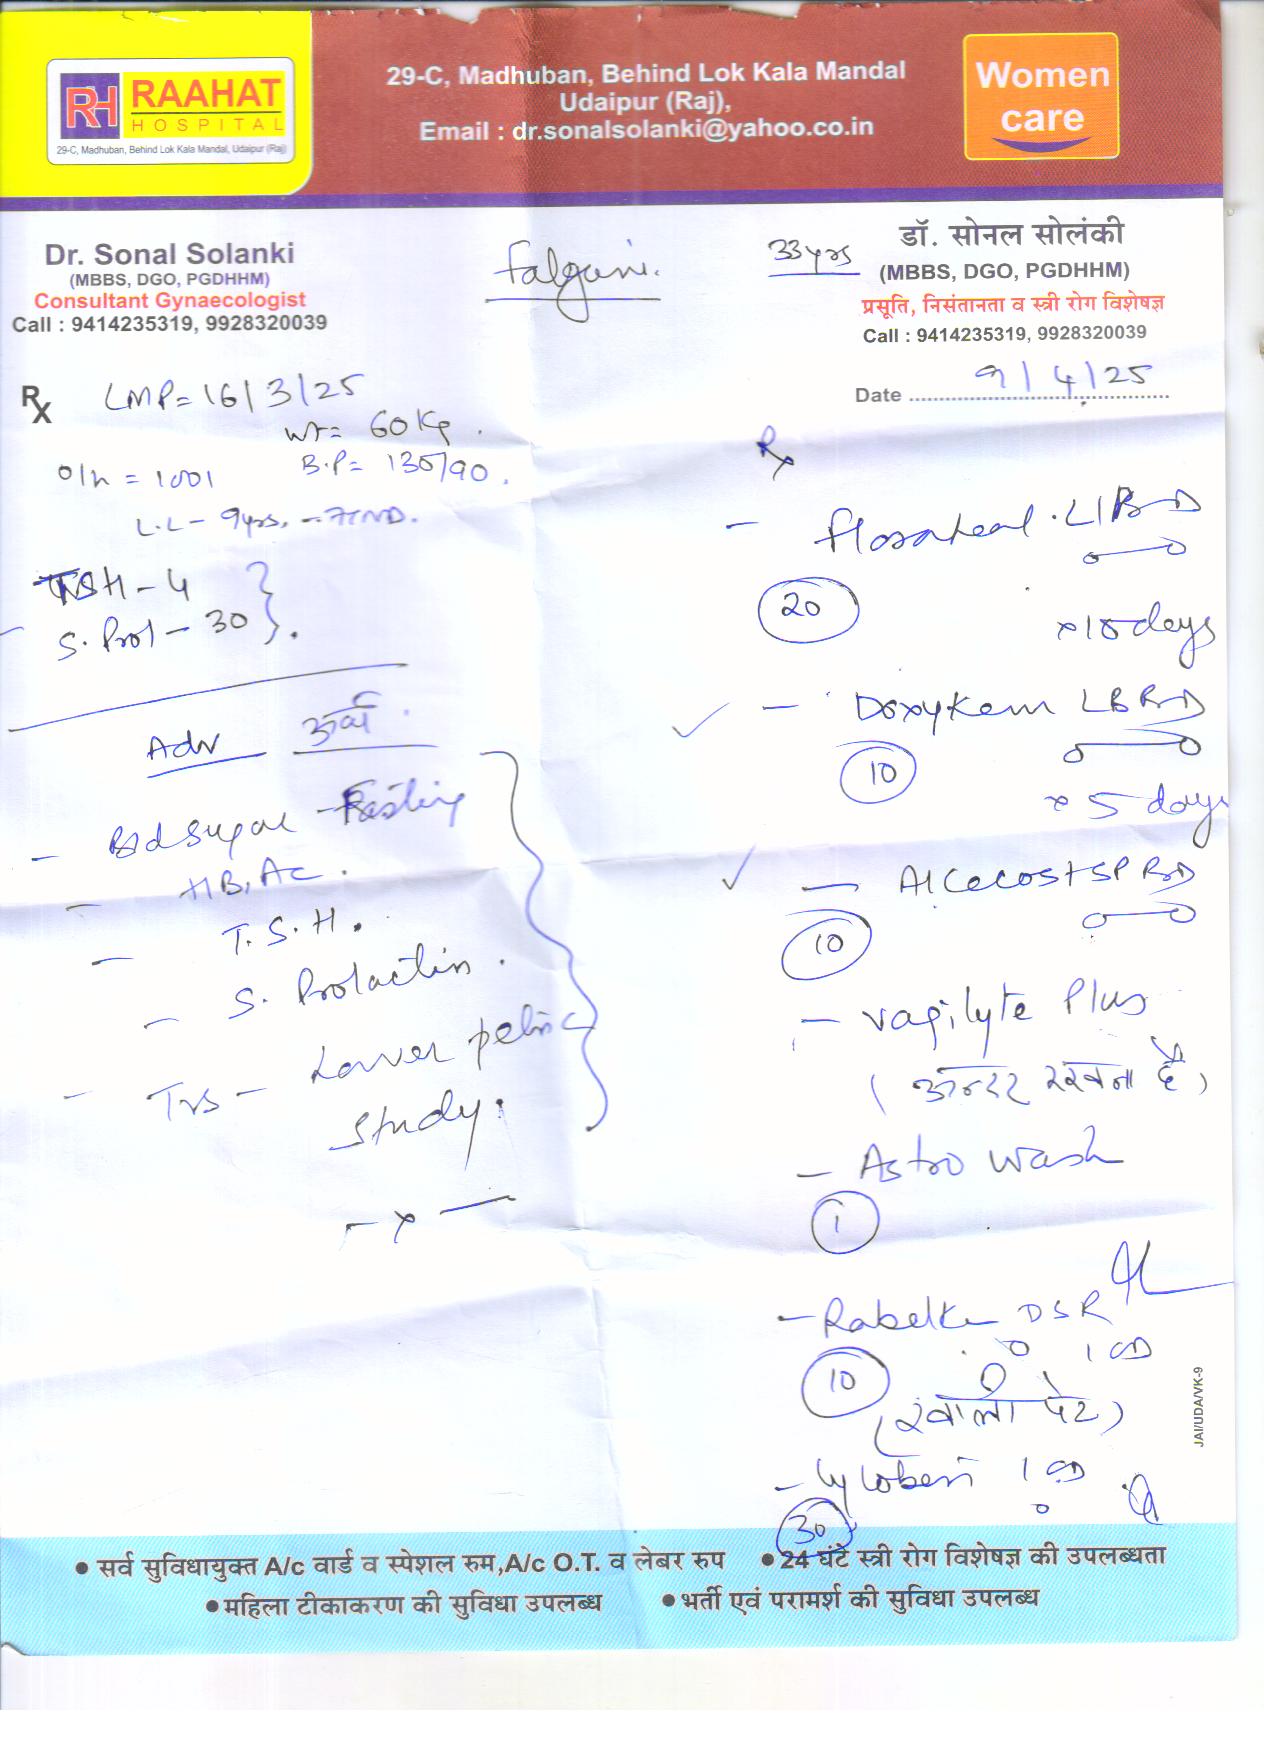 RH RAAHAT
HOSPITAL
29-C, Madhuban, Behind Lok Kala Mandal, Udaipur (Raj)
29-C, Madhuban, Behind Lok Kala Mandal
Udaipur (Raj),
Email : dr.sonalsolanki@yahoo.co.in
Women
care
Dr. Sonal Solanki
(MBBS, DGO, PGDHHM)
Consultant Gynaecologist
Call : 9414235319, 9928320039
Falguni.
33yrs
डॉ. सोनल सोलंकी
(MBBS, DGO, PGDHHM)
प्रसूति, निसंतानता व स्त्री रोग विशेषज्ञ
Call : 9414235319, 9928320039
Date 9/4/25
Rx LMP = 16/3/25
wt = 60 Kg.
B.P = 130/90.
O/H = 1001
L.L - 9yrs, - FTND.
TSH - 4
S. Prol - 30
Adv
- Bld Sugar - Fasting
- HB1AC.
- T.S.H.
- S. Prolactin.
- TVS - Lower pelvic
study.
- x -
Rx
- Floraheal 1 BD
20
x 10 days
- Doxykem 1 BD
10
x 5 days
- Alcecost SP BD
10
- Vagilyte Plus
(अन्दर रखना है)
- Astro wash
1
- DSR
1 OD
10
(खाली पेट)
- 1 OD
30
JAI/UDA/VK-9
• सर्व सुविधायुक्त A/c वार्ड व स्पेशल रुम,A/c O.T. व लेबर रुप • 24 घंटे स्त्री रोग विशेषज्ञ की उपलब्धता
• महिला टीकाकरण की सुविधा उपलब्ध • भर्ती एवं परामर्श की सुविधा उपलब्ध